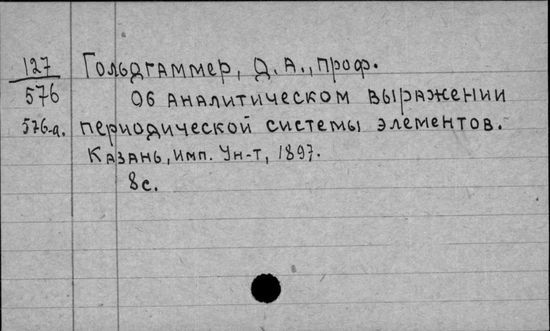 127 Гольдгаммер, Д. А., проф.
576 Об аналитическом выражении
576-а. периодической системы элементов.
Казань, имп. Ун-т, 1897.
8с.